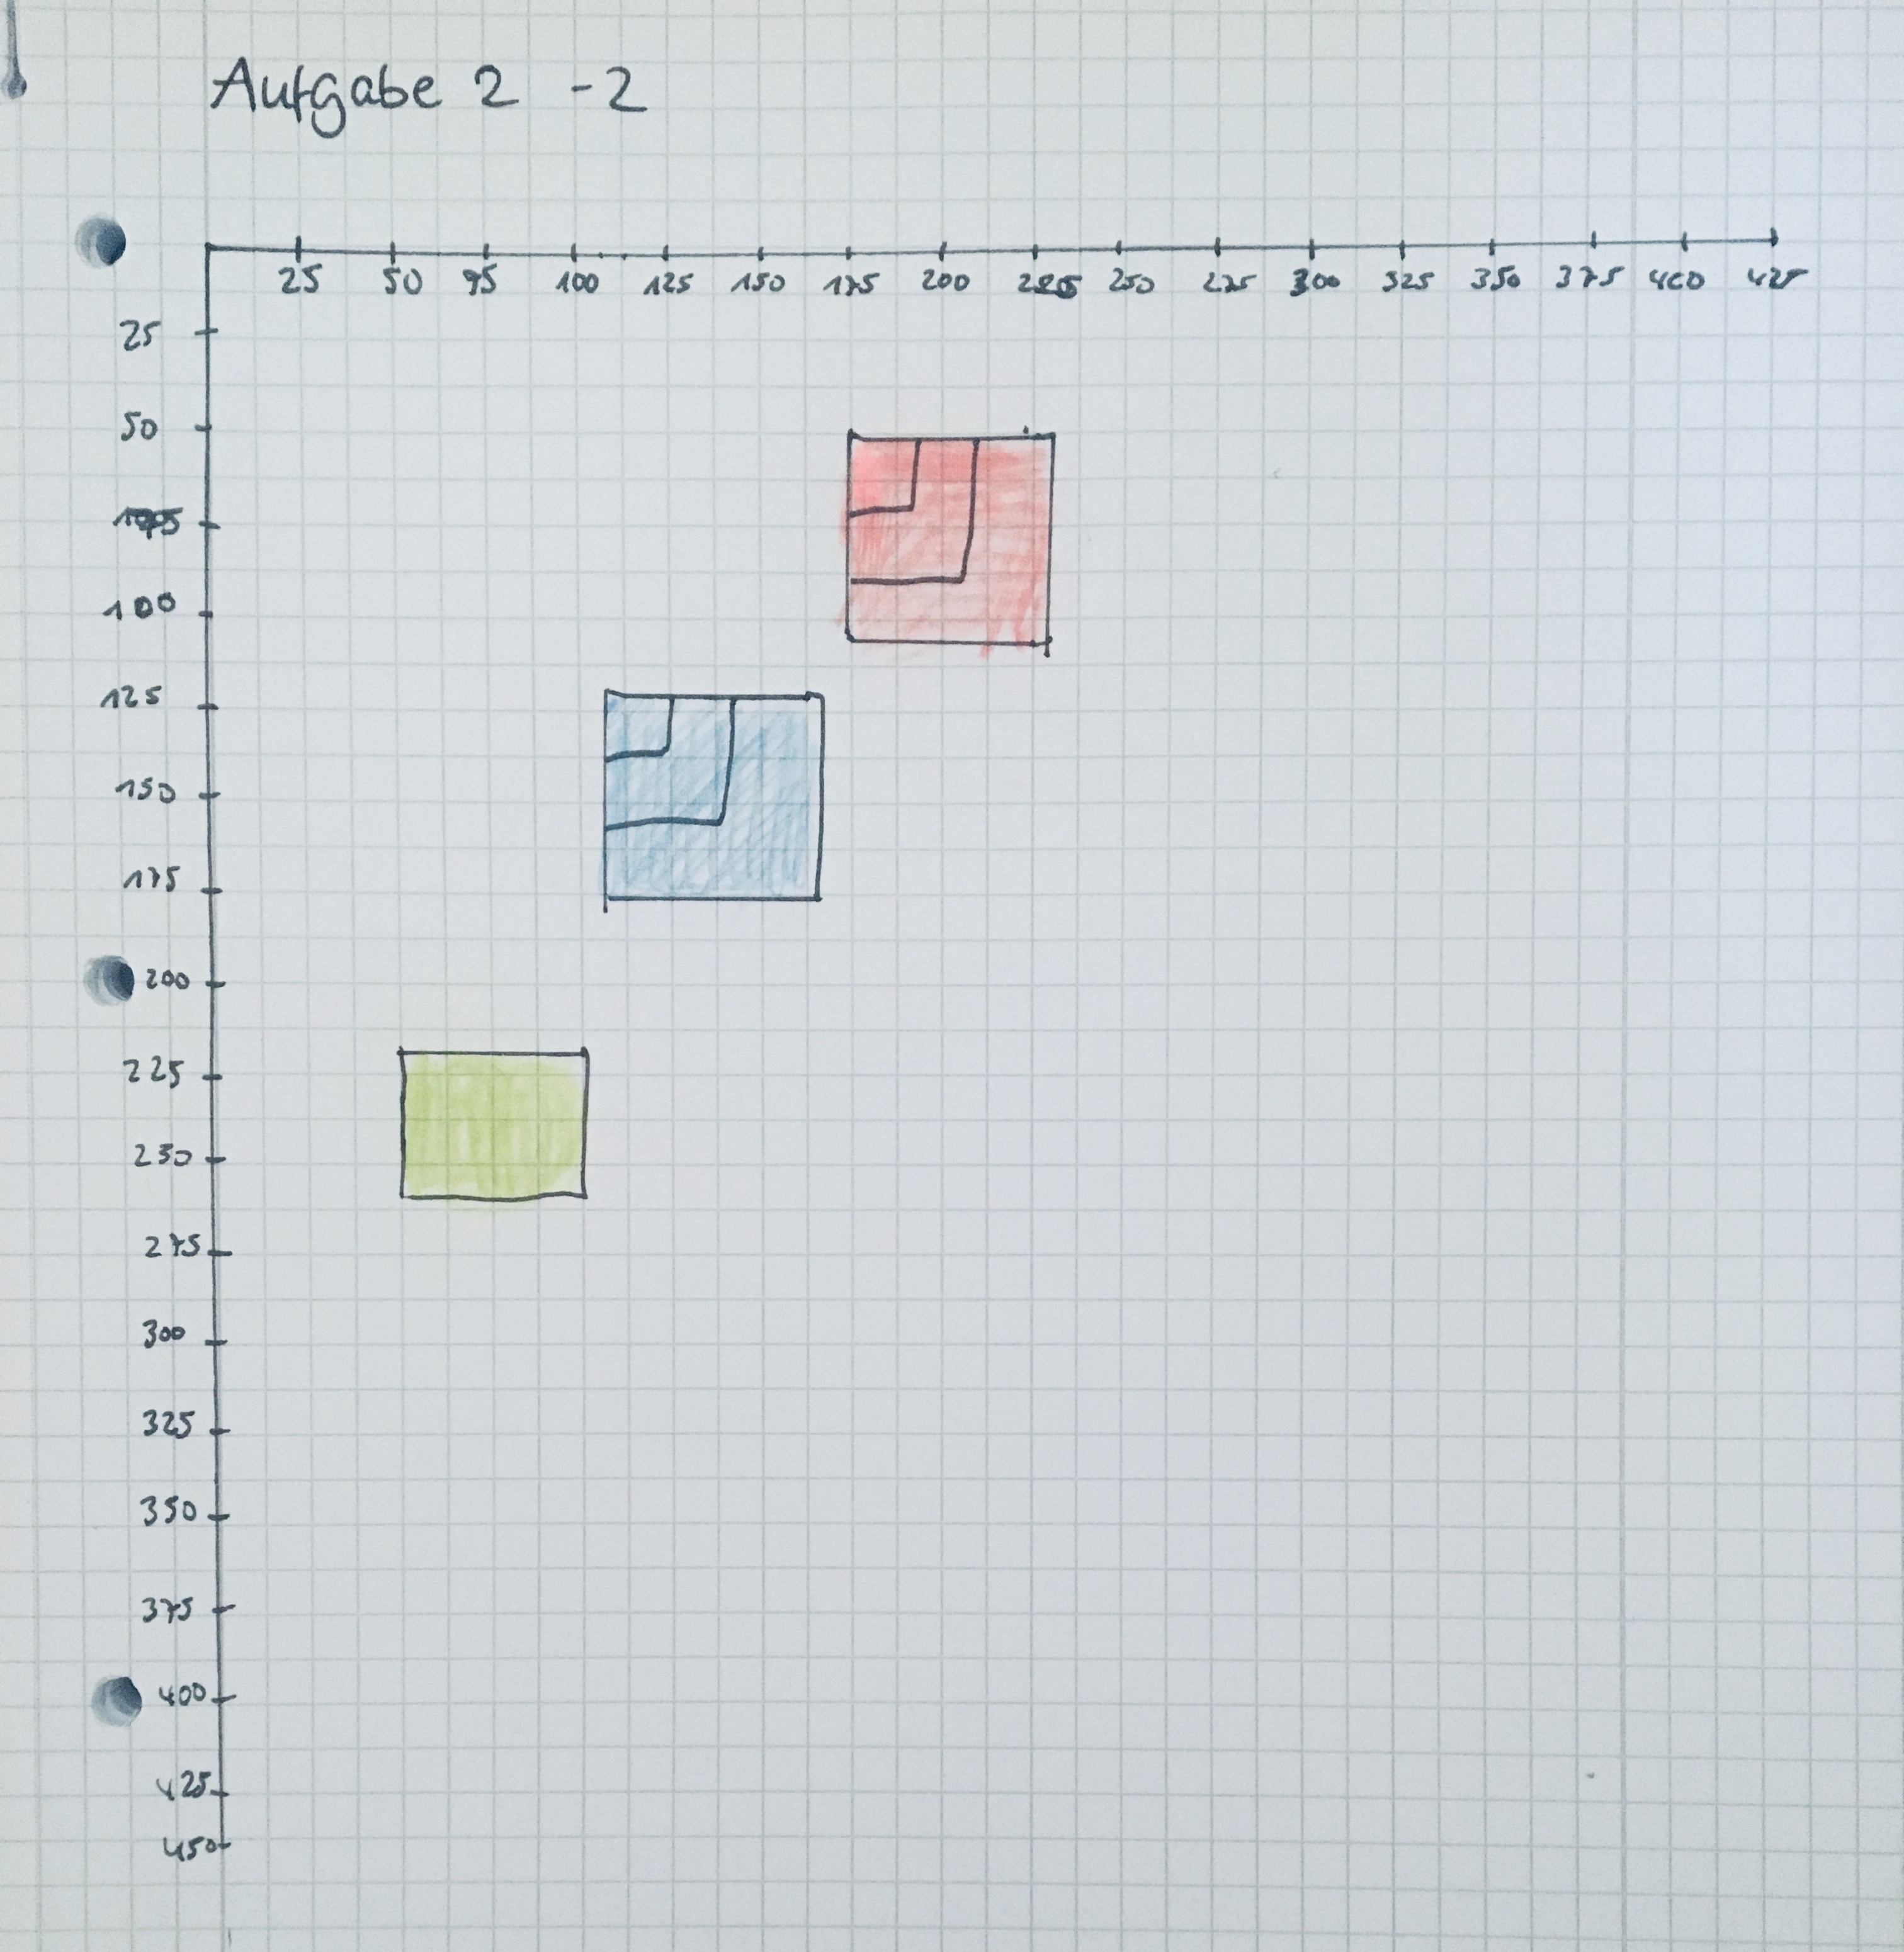 Aufgabe 2 -2
25 50 75 100 125 150 175 200 225 250 275 300 325 350 375 400 425
25
50
100
125
150
175
200
225
250
275
300
325
350
375
400
425
450